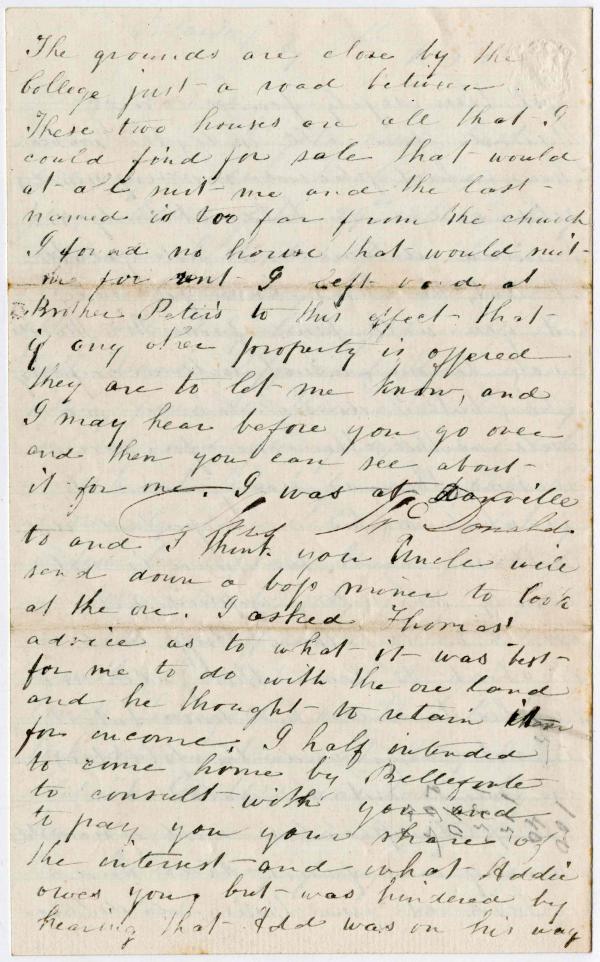 The grounds are close by the
College just a road between.
These two houses are all that I
could find for sale that would
at all suit me and the last
named is too far from the church
I found no house that would suit
me for rent I left word at
Brother Peters to this effect that
if any other property is offered
they are to let me know, and
I may hear before you go over
and then you can see about
it for me. I was at Danville
McDonald
to and I think you Uncle will
send down a boss miner to look
at the ore. I asked Thomas'
advice as to what it was best
for me to do with the ore land
and he thought to retain it
for income I half intended
to come home by Bellefonte
to consult with you and
to pay you your share of
the interest and what Addie
owes you but was hindered by
hearing that Edd was on his way